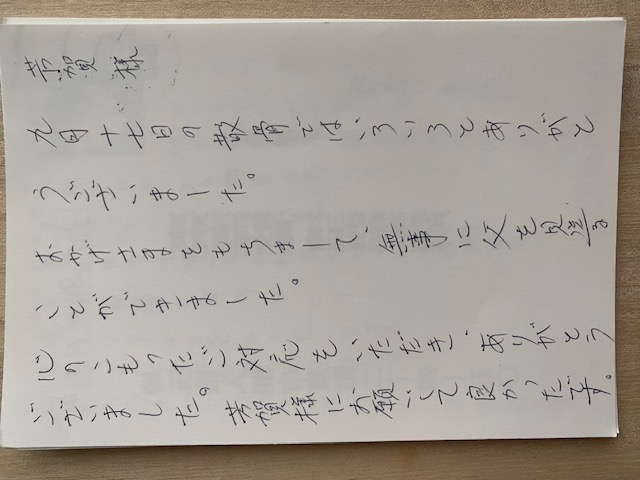 芳賀様
九月十七日の散骨ではいろいろとありがと
うございました。
おかげさまをもちまして、無事に父を見送る
ことができました。
心のこもったご対応をいただき、ありがとう
ございました。芳賀様にお願いして良かったです。